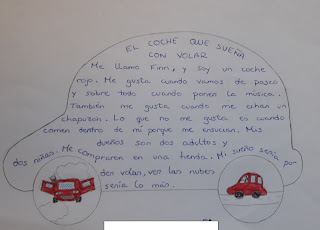 EL COCHE QUE SUEÑA
CON VOLAR
Me llamo Finn, y soy un coche
rojo. Me gusta cuando vamos de paseo
y sobre todo cuando ponen la música.
También me gusta cuando me echan un
chapuzón. Lo que no me gusta es cuando
comen dentro de mí porque me ensucian. Mis
dueños son dos adultos y
dos niñas. Me compraron en una tienda. Mi sueño sería po-
der volar, ver las nubes
sería lo más.